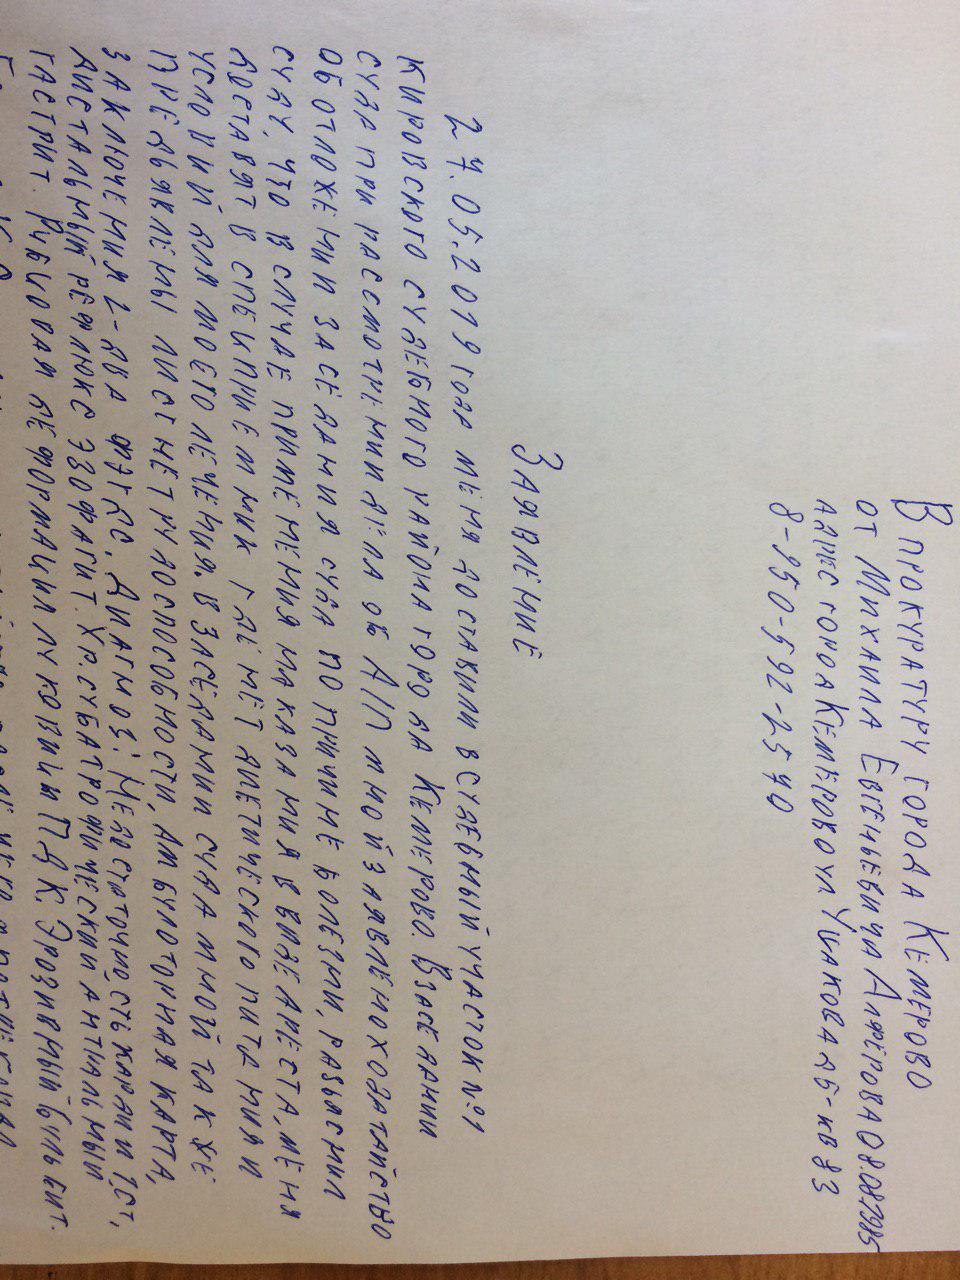 В прокуратуру города Кемерово
от Михаила Евгеньевича Алферова 08.08.1985
Адрес города Кемерово ул Ушакова д 5- кв 83
8-950-592-2540
Заявление
27.05.2019 года меня доставили в судебный участок №1
Кировского судебного района города Кемерово. В заседании
суда при рассмотрении дела об АП мной заявлено ходатайство
об отложении заседания суда по причине болезни, разъяснил
суду, что в случае применения наказания в виде ареста, меня
доставят в спецприемник где нет диетического питания и
условий для моего лечения. В заседании суда мной также
предъявлены лист нетрудоспособности, амбулаторная карта,
заключения 2-два ФГДС, Диагноз: Недостаточность кардии 1 ст,
дистальный рефлюкс эзофагит. Хр. субатрофический антральный
гастрит. Рубцовая деформация луковицы ДПК. Эрозивный бульбит.